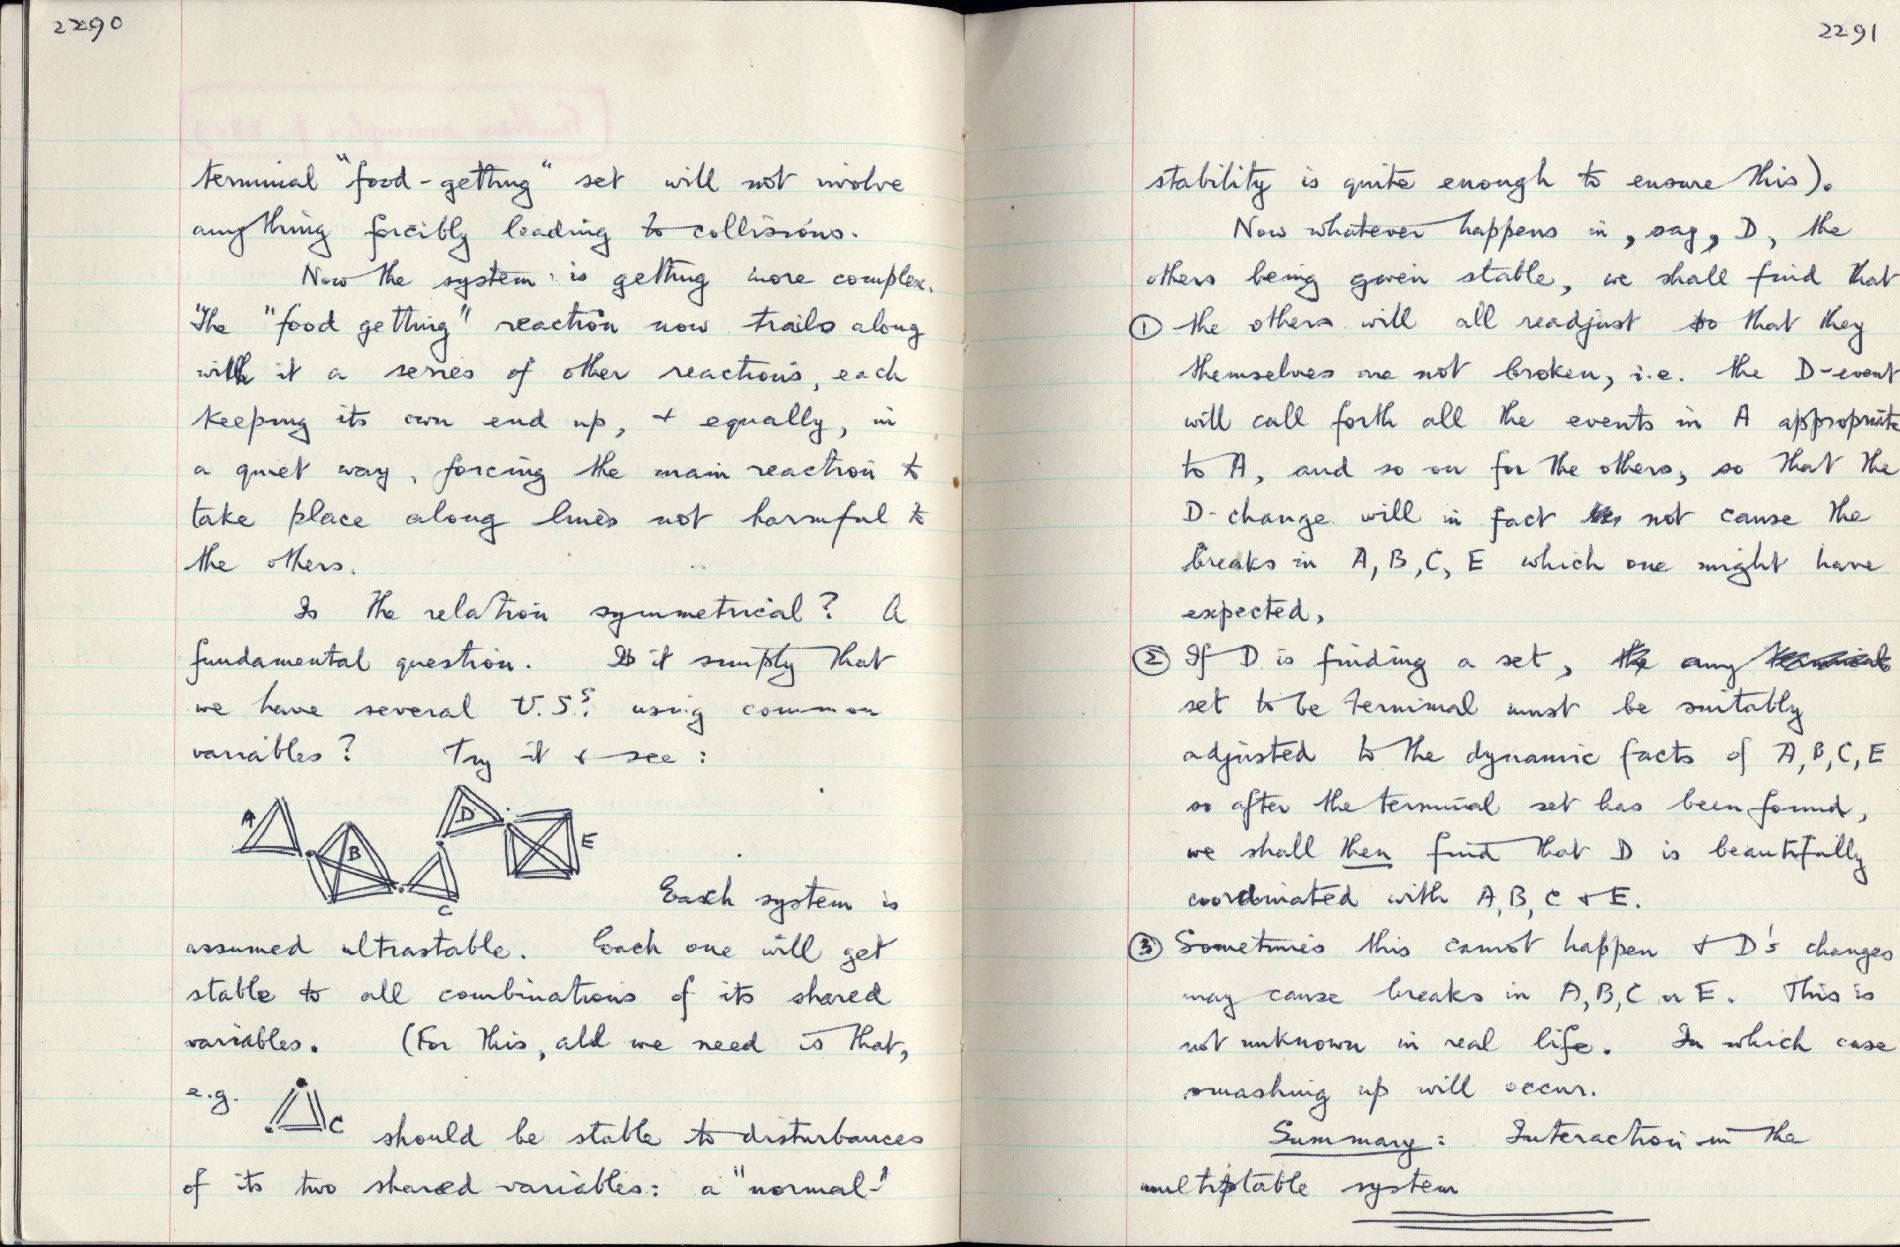 2290
terminal "food-getting" set will not involve
anything forcibly leading to collisions.
Now the system is getting more complex.
The "food getting" reaction now trails along
with it a series of other reactions, each
keeping its own end up, + equally, in
a quiet way, forcing the main reaction to
take place along lines not harmful to
the others.
Is the relation symmetrical? A
fundamental question. Is it simply that
we have several U.S.s using common
variables? Try it + see:
A
B
C
D
E
Each system is
assumed ultrastable. Each one will get
stable to all combinations of its shared
variables. (For this, all we need is that,
e.g. C should be stable to disturbances
of its two shared variables: a "normal"
2291
stability is quite enough to ensure this).
Now whatever happens in, say, D, the
others being given stable, we shall find that
① the others will all readjust so that they
themselves are not broken, i.e. the D-event
will call forth all the events in A appropriate
to A, and so on for the others, so that the
D-change will in fact not cause the
breaks in A, B, C, E which one might have
expected,
② If D is finding a set, any
set to be terminal must be suitably
adjusted to the dynamic facts of A, B, C, E
so after the terminal set has been found,
we shall then find that D is beautifully
coordinated with A, B, C + E.
③ Sometimes this cannot happen + D's changes
may cause breaks in A, B, C or E. This is
not unknown in real life. In which case
smashing up will occur.
Summary: Interaction in the
multistable system